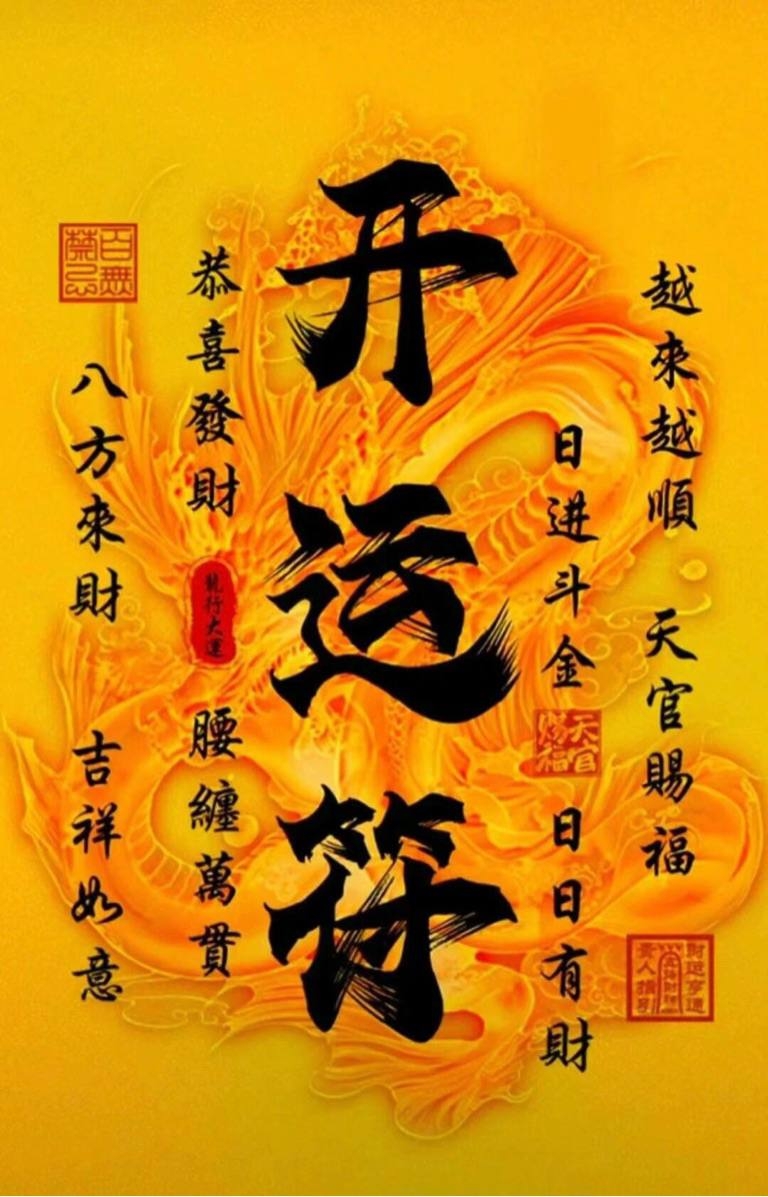 越來越順
天官賜福
日进斗金
天官
賜福
日日有財
財运亨通
貴人指引
开运符
恭喜發財
龍行大運
腰纏萬貫
百無
禁忌
八方來財
吉祥如意